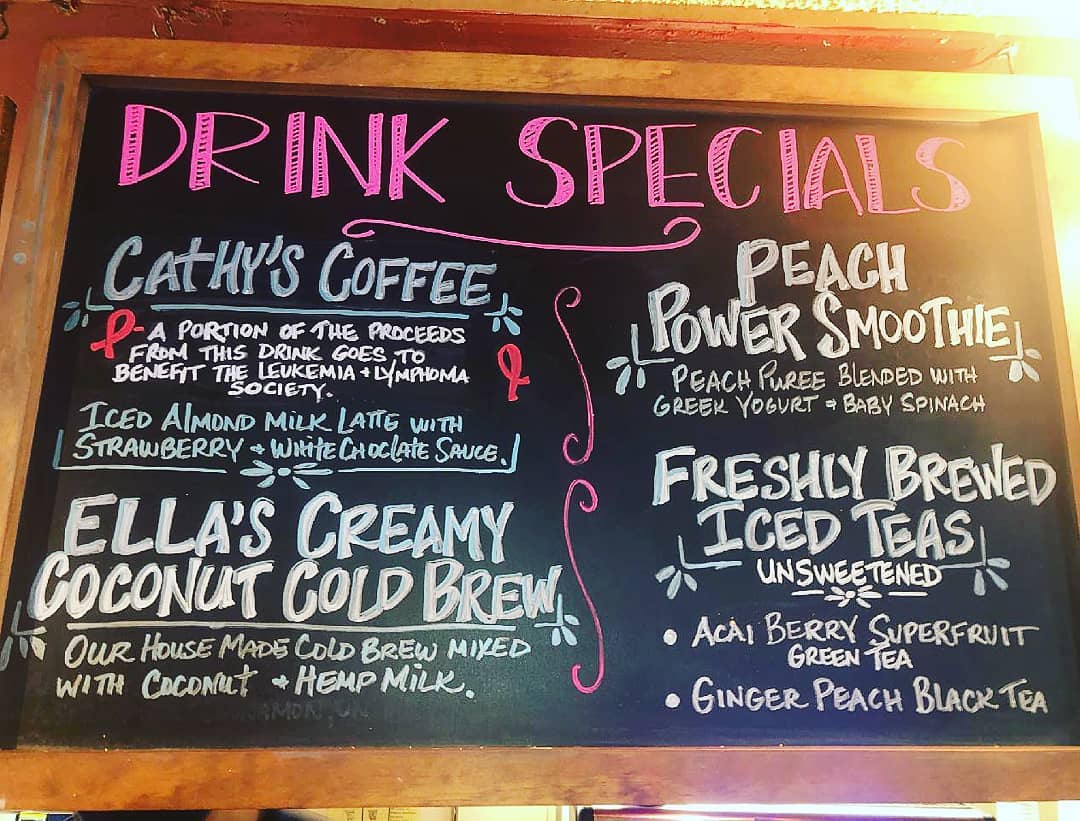 DRINK SPECIALS
CATHY'S COFFEE
A PORTION OF THE PROCEEDS
FROM THIS DRINK GOES TO
BENEFIT THE LEUKEMIA + LYMPHOMA
SOCIETY.
ICED ALMOND MILK LATTE WITH
STRAWBERRY + WHITE CHOCLATE SAUCE.
ELLA'S CREAMY
COCONUT COLD BREW
OUR HOUSE MADE COLD BREW MIXED
WITH COCONUT + HEMP MILK.
PEACH
POWER SMOOTHIE
PEACH PUREE BLENDED WITH
GREEK YOGURT + BABY SPINACH
FRESHLY BREWED
ICED TEAS
UNSWEETENED
• ACAI BERRY SUPERFRUIT
GREEN TEA
• GINGER PEACH BLACK TEA